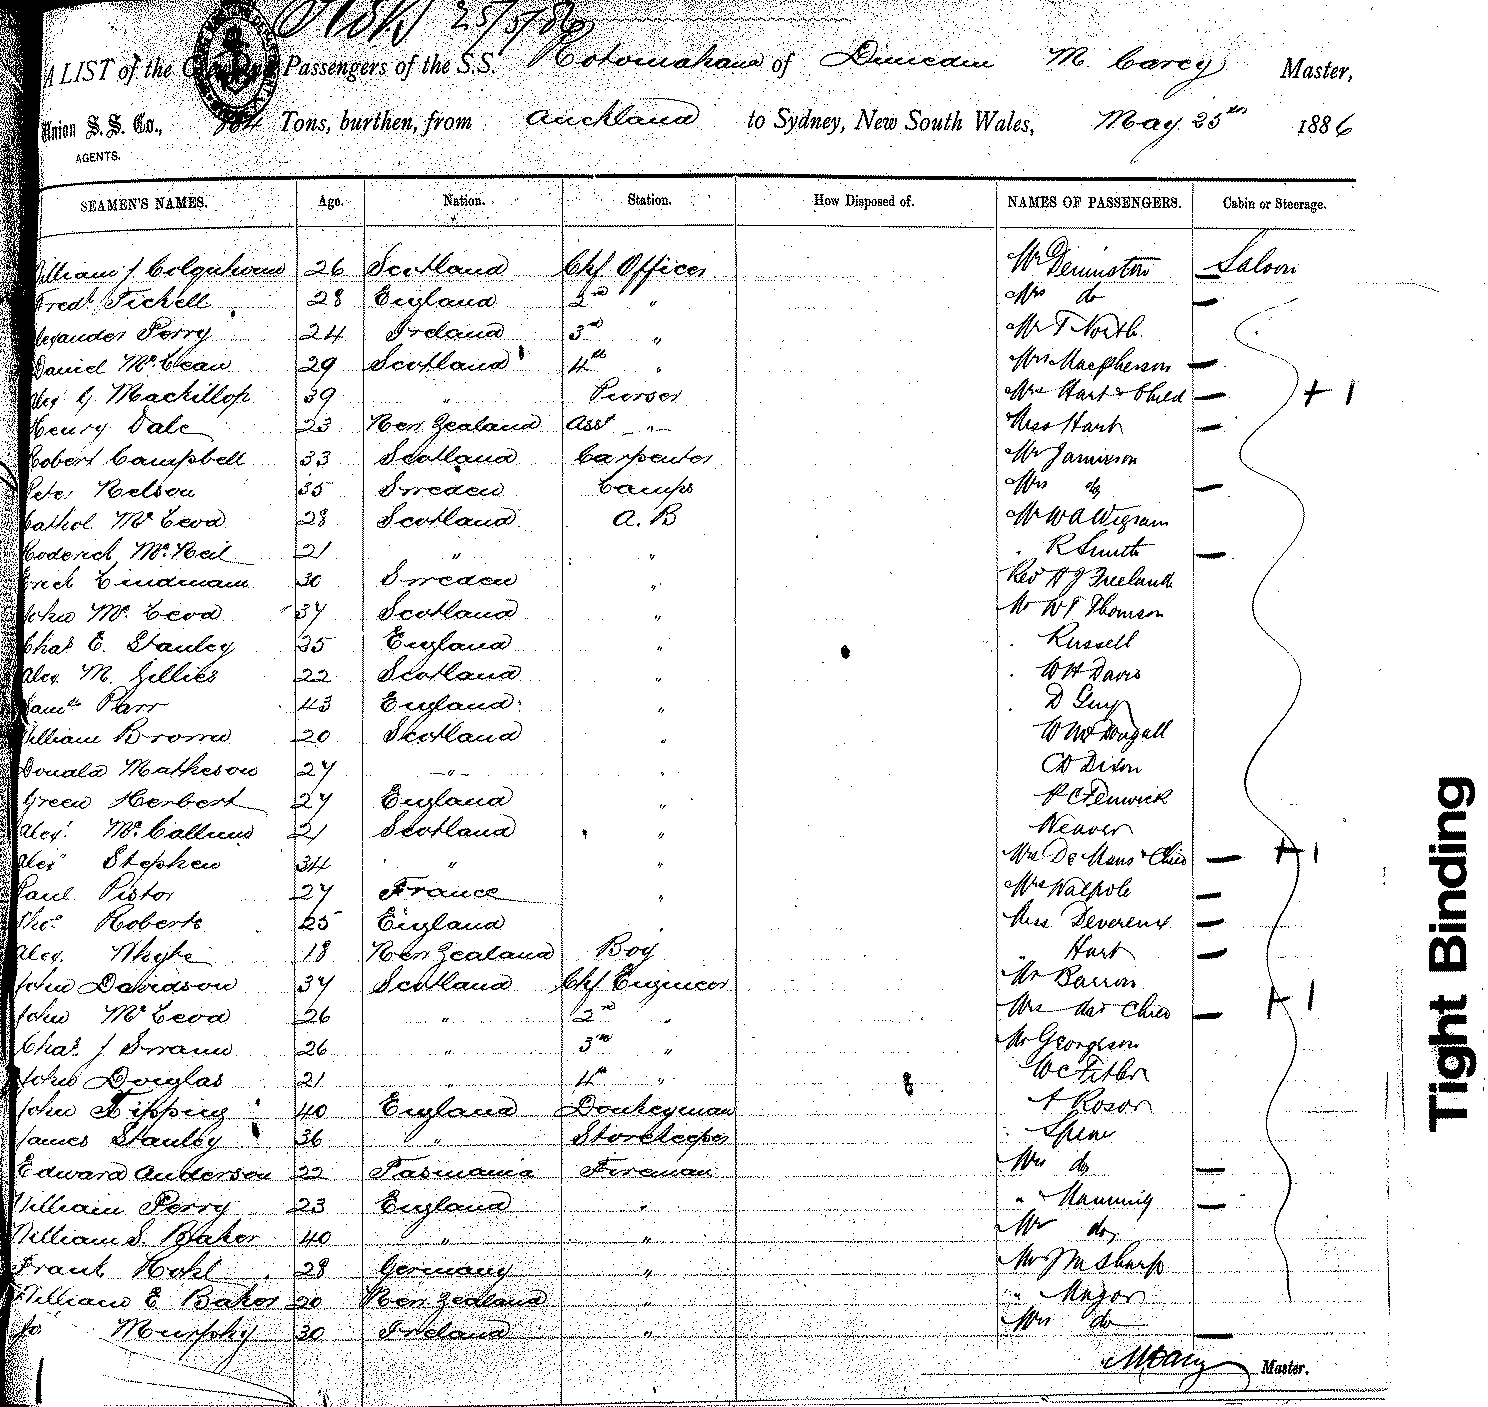 25/5/86
A LIST of the Crew and Passengers of the S.S. Rotomahana of Duncan M. Carey Master,
Union S. S. Co., Tons, burthen, from Auckland to Sydney, New South Wales, May 25th 1886
AGENTS.
SEAMEN'S NAMES. Age. Nation. Station. How Disposed of. NAMES OF PASSENGERS. Cabin or Steerage.
William J Colquhoun 26 Scotland Chf Officer Mr Denniston Saloon
Fredk Tickell 28 England 2nd " Mrs do —
Alexander Perry 24 Ireland 3rd " Mr T North
Daniel McLean 29 Scotland 4th " Mrs Macpherson —
Alex G Mackillop 39 " Purser Mrs Hart & Child — + 1
Henry Dale 23 New Zealand Asst " Miss Hart —
Robert Campbell 33 Scotland Carpenter Mr Jamieson
Peter Nelson 35 Sweden Lamps Mrs do —
McLeod 28 Scotland A. B Mr W A Wigram
Roderick McNeil 21 " " R Smith —
Erick Lindmann 30 Sweden " Rev H J Freeland
John McLeod 37 Scotland " Mr W J Thomson
Chas E. Stanley 35 England " Russell
Alex. M. Gillies 22 Scotland " W H Davis
Saml Parr 43 England " D Guy
William Brown 20 Scotland " W McDougall
Donald Matheson 27 " " Dixon
Green Herbert 27 England " Fenwick
Alexr McCallum 21 Scotland " Weaver
Alexr Stephen 34 " " Mrs De Mans & Child — + 1
Paul Pistor 27 France " Mrs Walpole —
Thos Roberts 25 England " Miss Devereux —
Alex. Whyte 18 New Zealand Boy " Hart —
John Davidson 37 Scotland Chf Engineer Mr Barron
John McLeod 26 " 2nd " Mrs do & Child — + 1
Chas J Swann 26 " 3rd " Mr Georgeson
John Douglas 21 " 4th " W C
John Tipping 40 England Donkeyman A Rosor
James Stanley 36 " Storekeeper
Edward Anderson 22 Tasmania Fireman Mrs do —
William Perry 23 England " " Manning —
William S. Baker 40 " " Mr do
Frank Hohl 28 Germany " Mr J M Sharp
William E Baker 20 New Zealand " " Major
Jo Murphy 30 Ireland " Mrs do —
M Carey Master.
Tight Binding